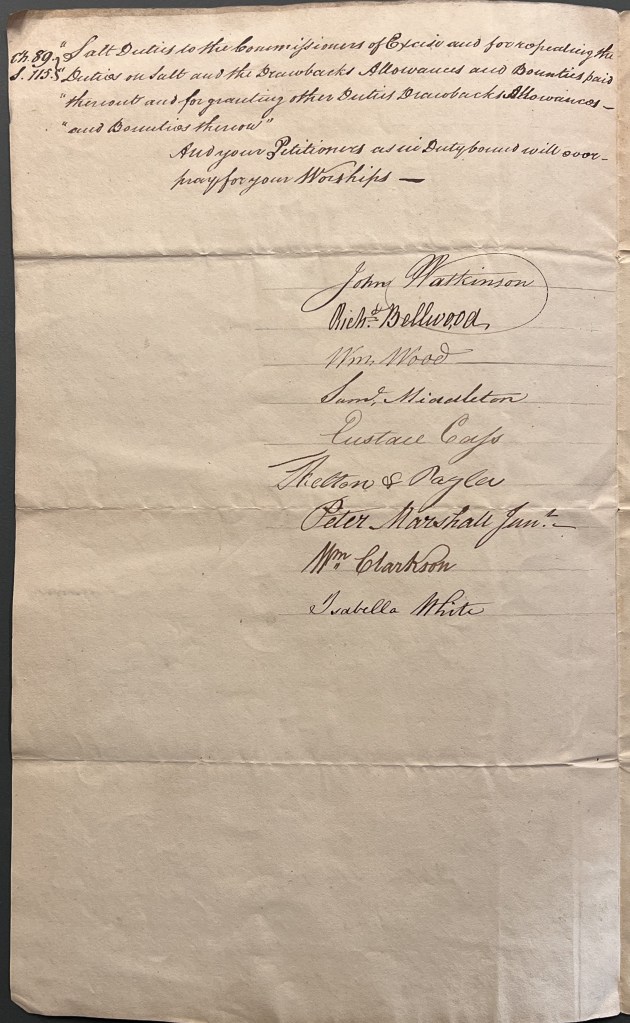 Ch. 89. "Salt Duties to the Commissioners of Excise and for repealing the
S. 115. "Duties on Salt and the Drawbacks Allowances and Bounties paid
"thereout and for granting other Duties Drawbacks Allowances –
"and Bounties thereon"
And your Petitioners as in Duty bound will ever –
pray for your Worships —
John Watkinson
Richd. Bellwood
Wm. Wood
Saml. Middleton
Eustace Cass
Skelton & Pagler
Peter Marshall Junr. –
Wm. Clarkson
Isabella White